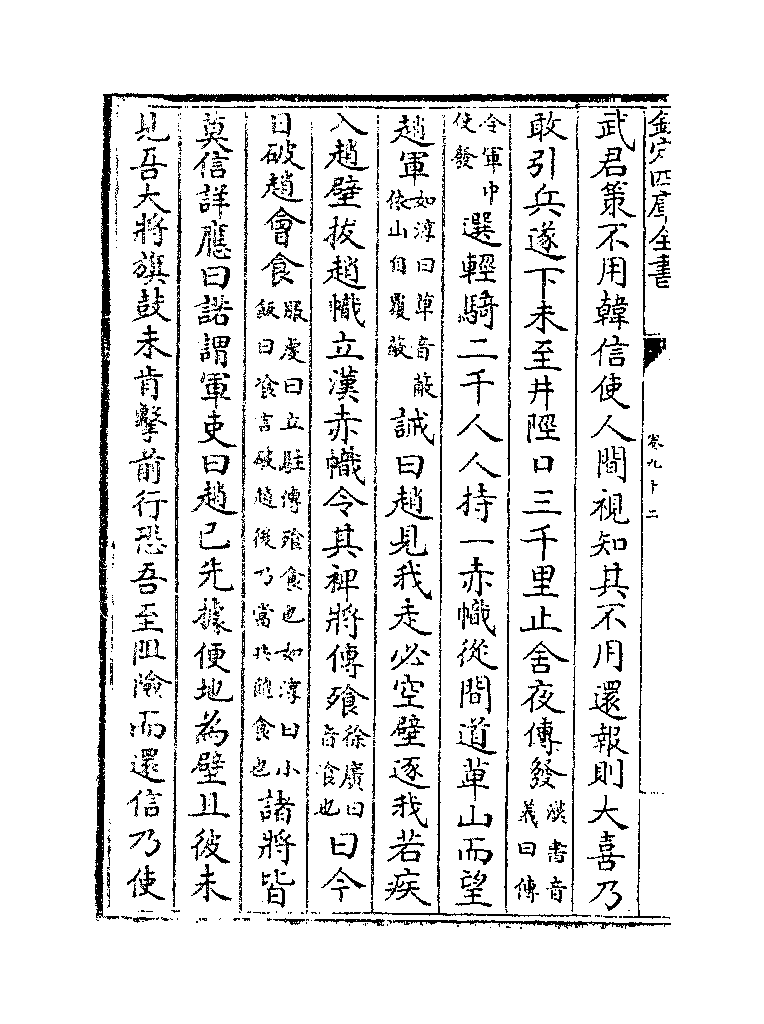 欽定四庫全書
卷九十二
武君策不用韓信使人間視知其不用還報則大喜乃
敢引兵遂下未至井陘口三千里止舍夜傳發漢書音義曰傳
令軍中使發選輕騎二千人人持一赤幟從間道萆山而望
趙軍如淳曰萆音蔽依山自覆蔽誡曰趙見我走必空壁逐我若疾
入趙壁拔趙幟立漢赤幟令其裨將傳飱徐廣曰音飡也曰今
日破趙會食服虔曰立駐傳飱食也如淳曰小飯曰飡言破趙後乃當共飽食也諸將皆
莫信詳應曰諾謂軍吏曰趙已先據便地為壁且彼未
見吾大將旗鼓未肯擊前行恐吾至阻險而還信乃使